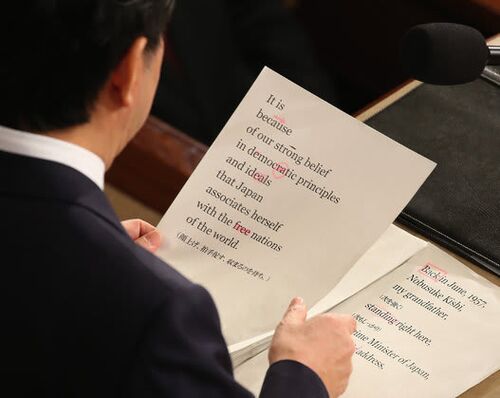 It is
because
of our strong belief
in democratic principles
and ideals
that Japan
associates herself
with the free nations
of the world.
Back in June, 1957,
Nobusuke Kishi,
my grandfather,
standing right here,
Prime Minister of Japan,
address.